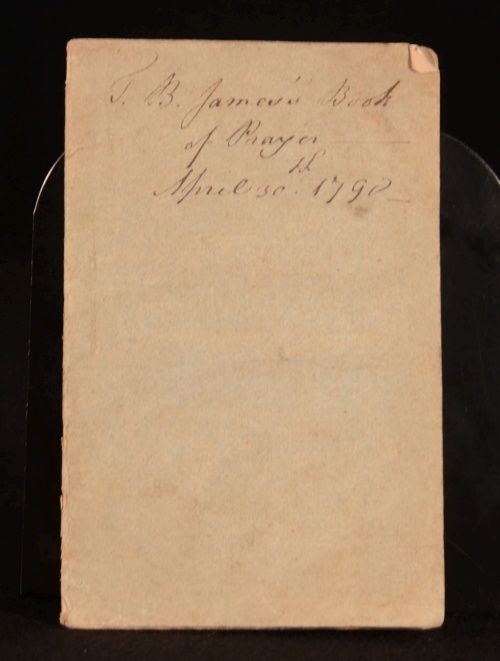 T. B. James's Book
of Prayer
April 30th 1790